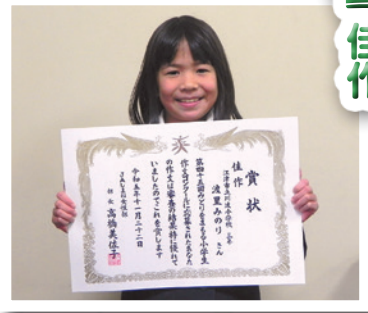 佳
作
賞状
佳作
江津市立川波小学校 三年
渡里みのり さん
第四十五回みどりをまもる小学生
作文コンクールに応募されたあなた
の作文は審査の結果特に優れて
いましたのでこれを賞します
令和五年十一月二十二日
JAしまね女性部
部長 高橋美佳子